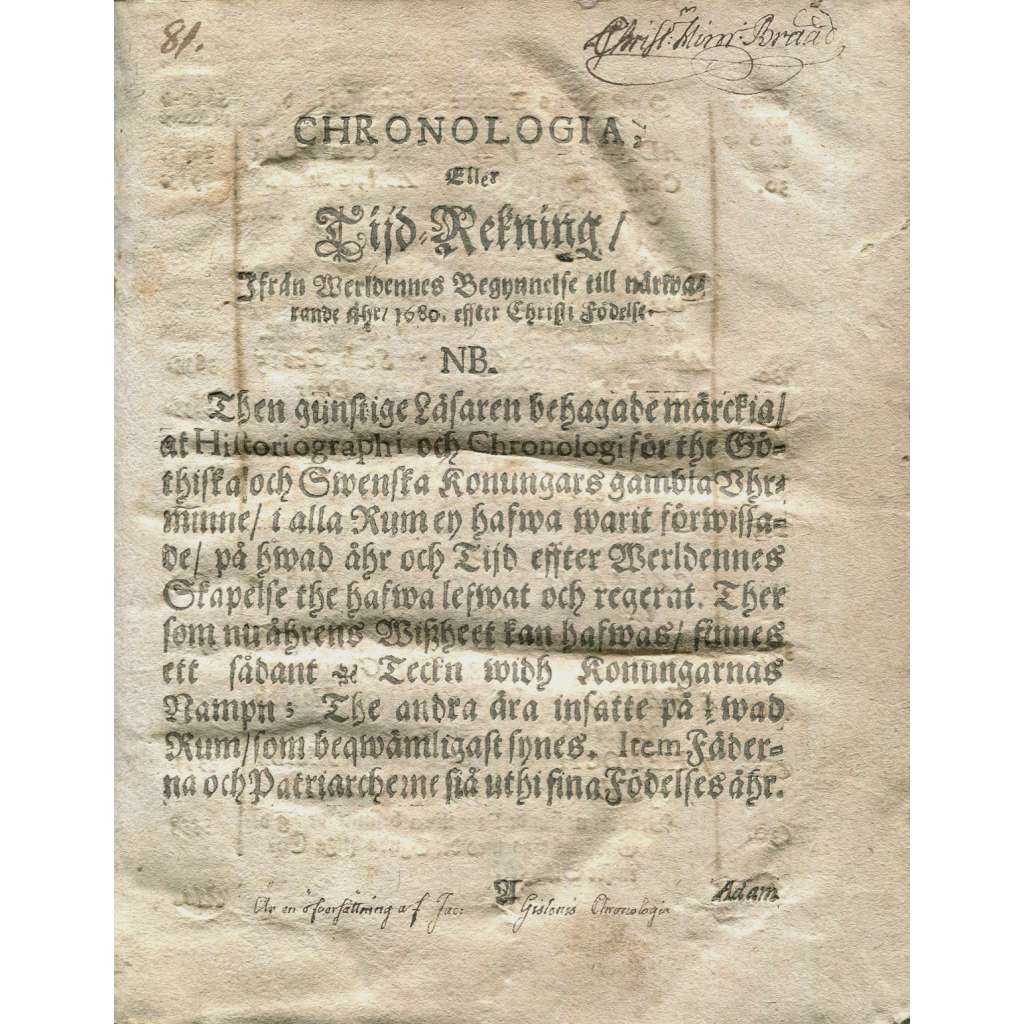 81.
Christ: Hinr: Braad,
CHRONOLOGIA,
Eller
Tijd-Rekning/
Ifrån Werldennes Begynnelse till närwa-
rande åhr/ 1680. effter Christi Födelse.
NB.
Then gunstige Läsaren behagade märckia/
at Historiographi och Chronologi för the Gö-
thiska och Swenska Konungars gambla Uhr-
minne/ i alla Rum ey hafwa warit förwissa-
de/ på hwad åhr och Tijd effter Werldennes
Skapelse the hafwa lefwat och regerat. Ther
som nu åhrens Wißheet kan hafwas/ finnes
ett sådant Teckn widh Konungarnas
Nampn; The andra ära insatte på hwad
Rum/ som beqwämligast synes. Item Fäder-
na och Patriarcherne siå uthi sina Födelses åhr.
A
Adam
Är en öfversättning af Jac: Gislonis Chronologia